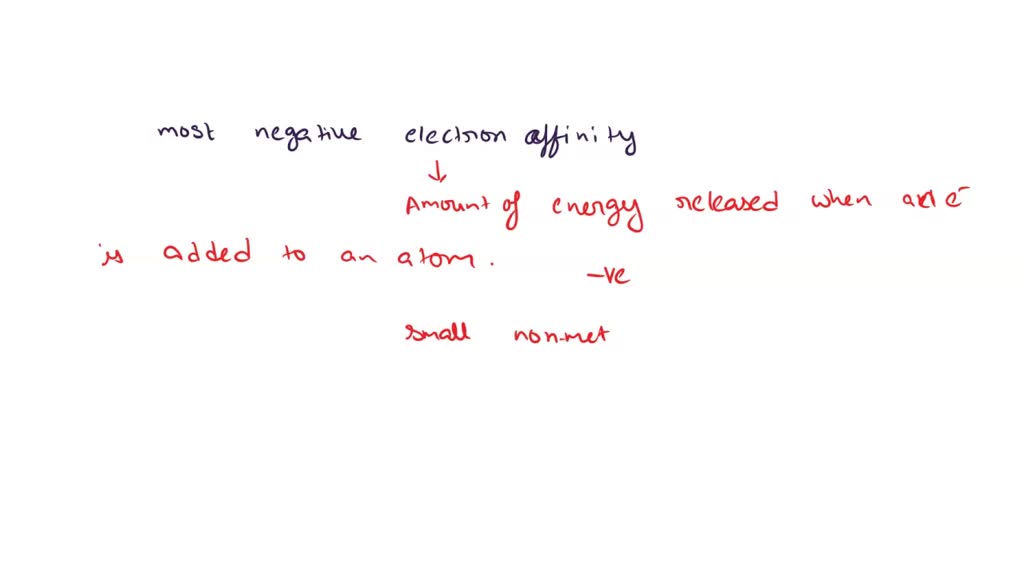 most negative electron affinity
↓
Amount of energy released when e⁻
is added to an atom.
-ve
small non-met